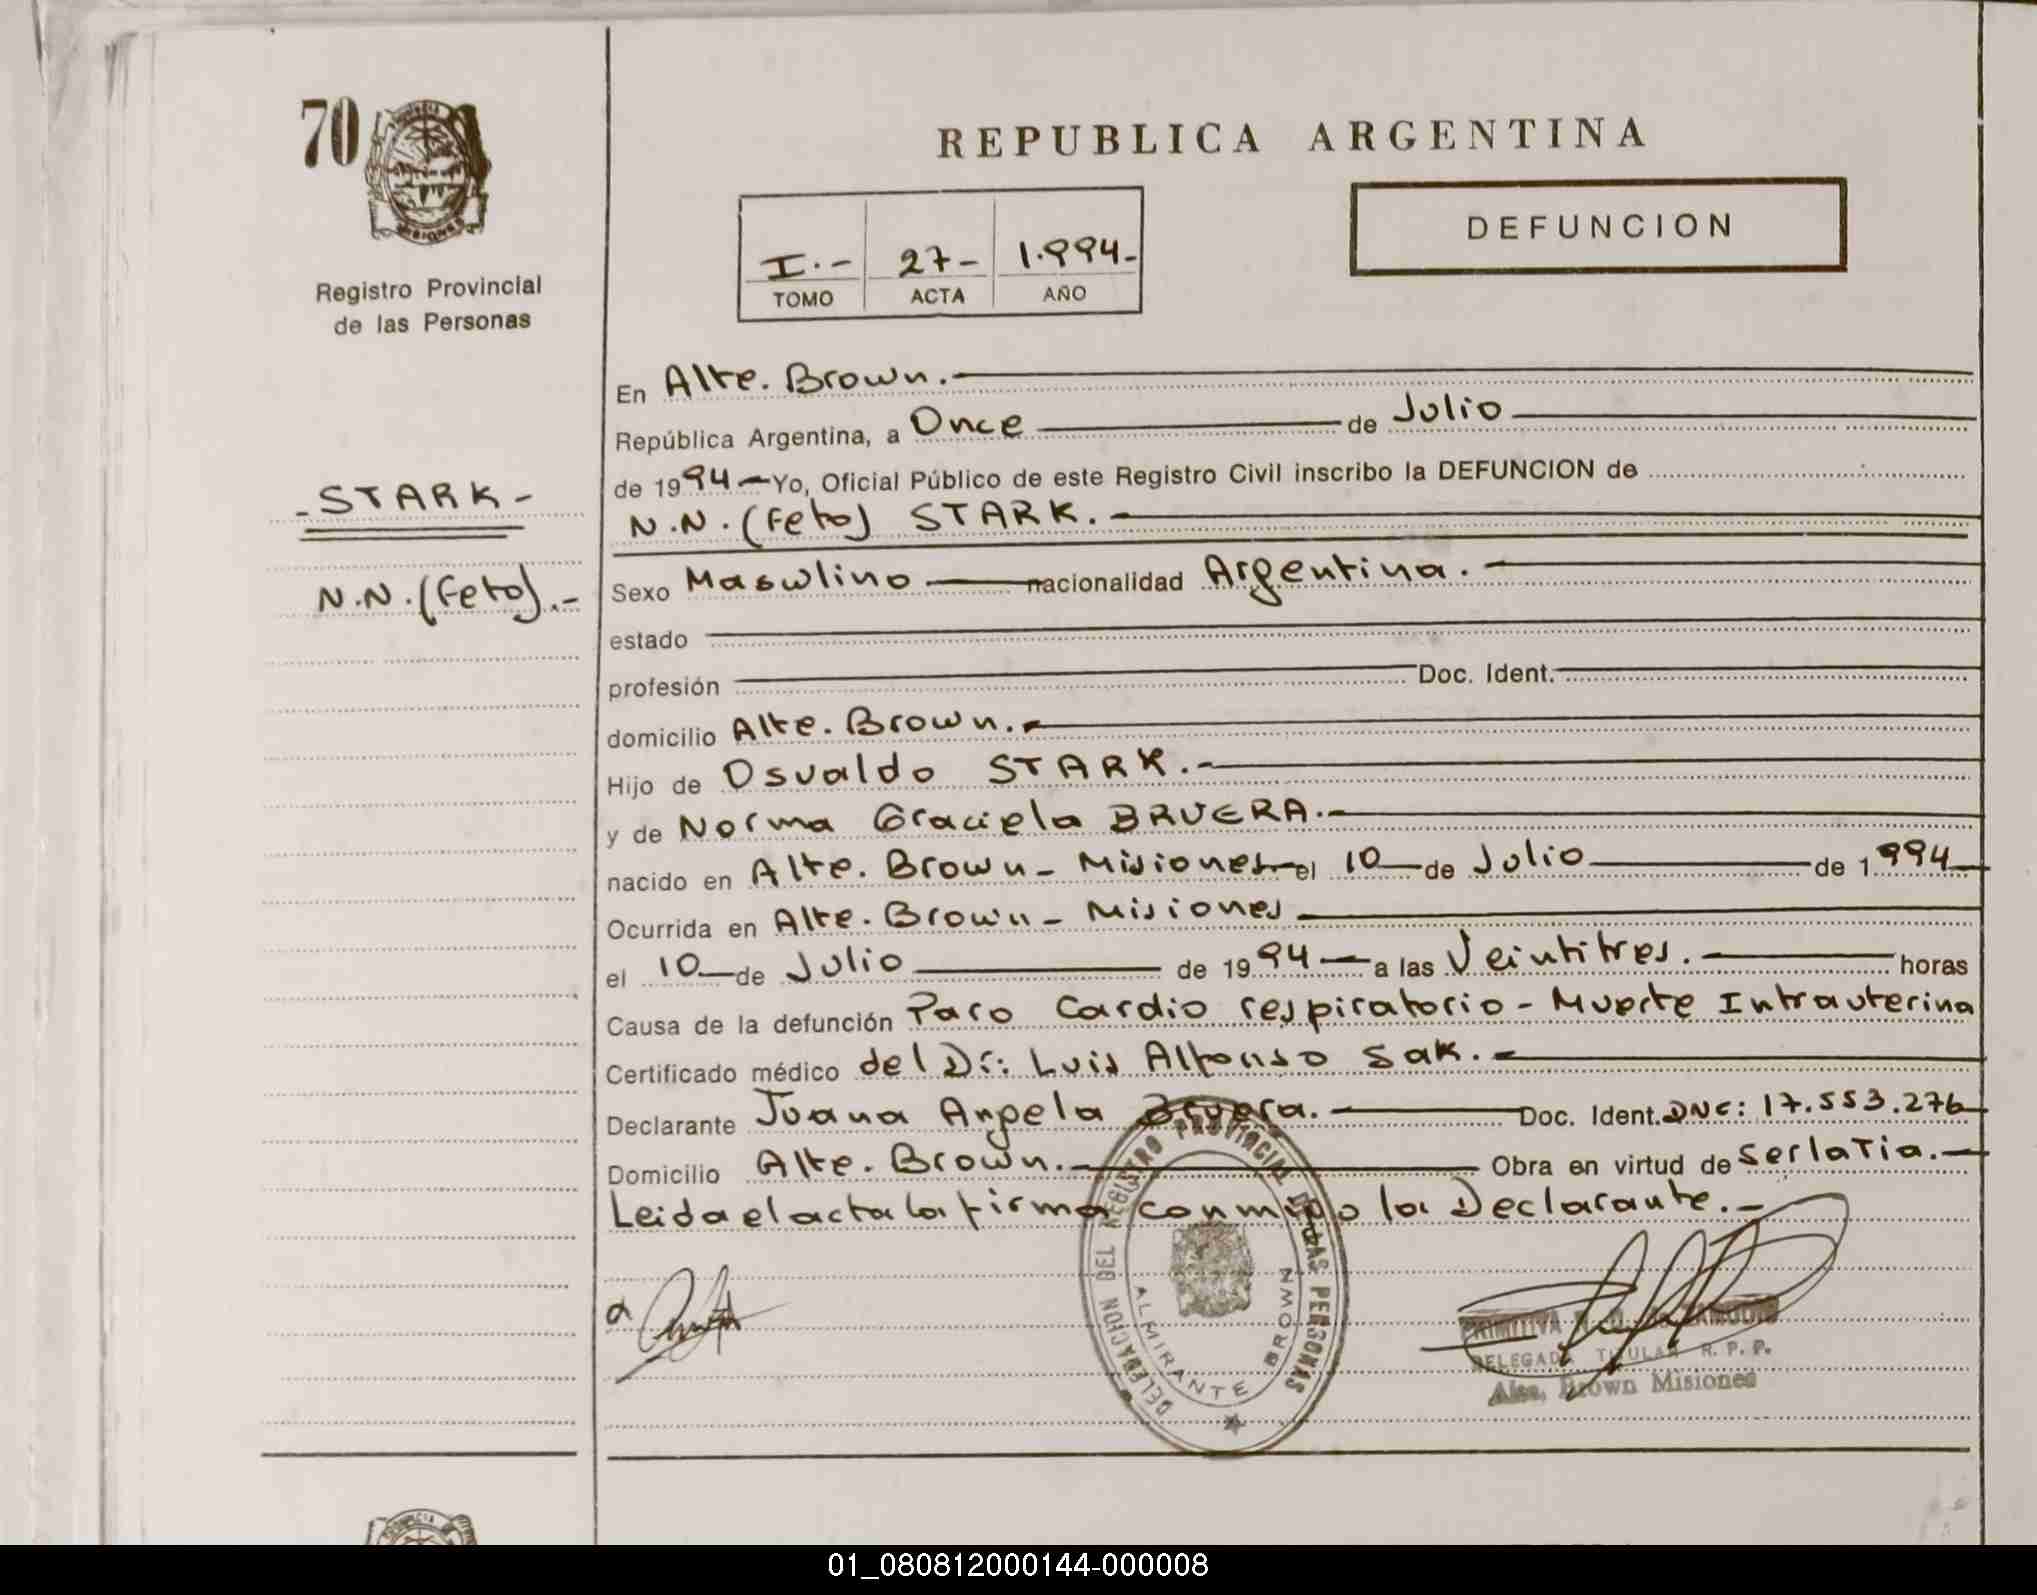 70
Registro Provincial
de las Personas
- STARK -
N.N. (Feto).-
REPUBLICA ARGENTINA
I.- 27- 1.994-
TOMO ACTA AÑO
DEFUNCION
En Alte. Brown.-
República Argentina, a Once de Julio
de 1994 Yo, Oficial Público de este Registro Civil inscribo la DEFUNCION de
N.N. (Feto) STARK.-
Sexo Masculino nacionalidad Argentina.-
estado
profesión Doc. Ident.
domicilio Alte. Brown.-
Hijo de Osvaldo STARK.-
y de Norma Graciela BRUERA.-
nacido en Alte. Brown - Misiones el 10 de Julio de 1.994
Ocurrida en Alte. Brown - Misiones
el 10 de Julio de 1994 a las Veintitres. horas
Causa de la defunción Paro Cardio respiratorio - Muerte Intrauterina
Certificado médico del Dr: Luis Alfonso Sak.-
Declarante Juana Angela Bruera. Doc. Ident. DNC: 17.553.276
Domicilio Alte. Brown.- Obra en virtud de ser la Tia.-
Leida el acta la firma conmigo la Declarante.-
DELEGACION DEL REGISTRO PROVINCIAL DE LAS PERSONAS
ALMIRANTE BROWN
PRIMITIVA
DELEGADA TITULAR R. P. P.
Alte. Brown Misiones
01_080812000144-000008